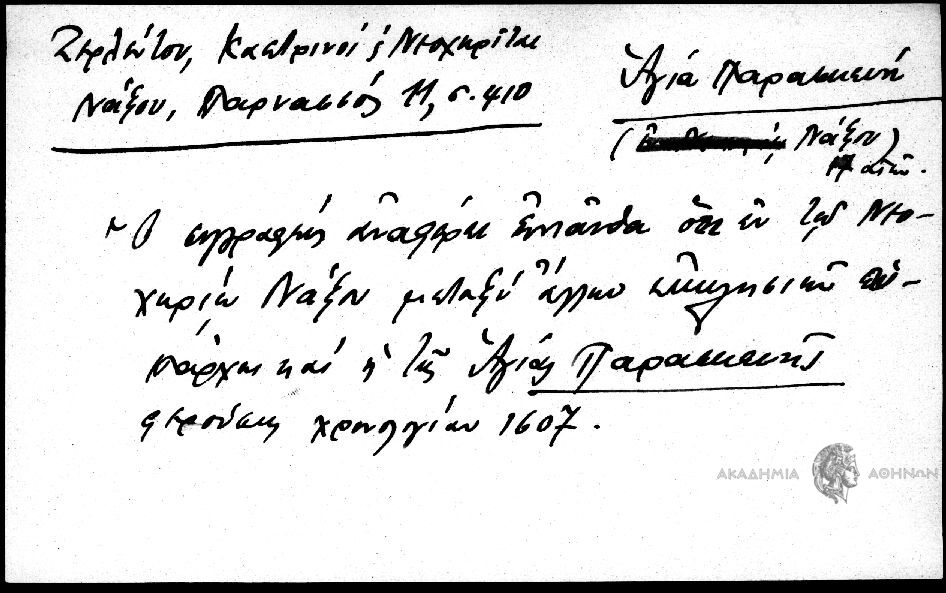 Ζερλέντου, Καστρινοί & Νεοχωρῖται
Νάξου, Παρνασσός 11, σ. 410
Ἁγία Παρασκευή
( Νάξου)
17 αἰών.
Ὁ συγγραφεὺς ἀναφέρει ἐνταῦθα ὅτι ἐν τῷ Νεο-
χωρίῳ Νάξου μεταξὺ ἄλλων ἐκκλησιῶν ὑ-
πάρχει καὶ ἡ τῆς Ἁγίας Παρασκευῆς
φερούσης χρονολογίαν 1607.
ΑΚΑΔΗΜΙΑ ΑΘΗΝΩΝ